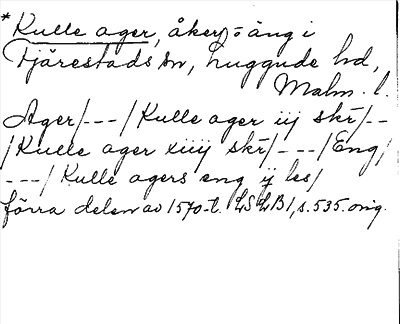 *Kulle ager, åker o äng i
Fjärestads sn, Luggude hd,
Malm. l.
Ager/---/Kulle ager iij skr/--
/Kulle ager xiiij skr/---/Eng/
---/Kulle agers eng ij les/
förra delen av 1570-t. LSLB1, s. 535. orig.